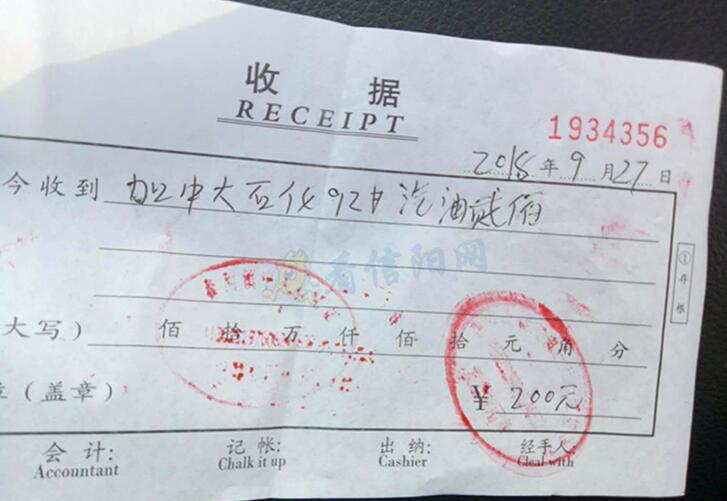 收据
RECEIPT
1934356
2018年9月27日
今收到 加中大石化92#汽油贰佰
①存根
看信阳网
大写) 佰 拾 万 仟 佰 拾 元 角 分
(盖章) ¥ 200元
会计: 记帐: 出纳: 经手人:
Accountant Chalk it up Cashier Cleal with